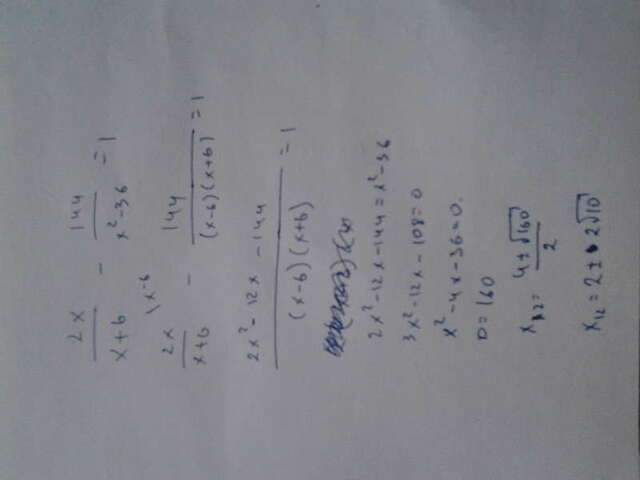 2x/(x+6) - 144/(x²-36) = 1
2x/(x+6) \x-6 - 144/((x-6)(x+6)) = 1
(2x²-12x-144)/((x-6)(x+6)) = 1
2x²-12x-144=x²-36
3x²-12x-108=0
x²-4x-36=0.
D=160
x₁,₂= (4±√160)/2
x₁,₂=2±2√10